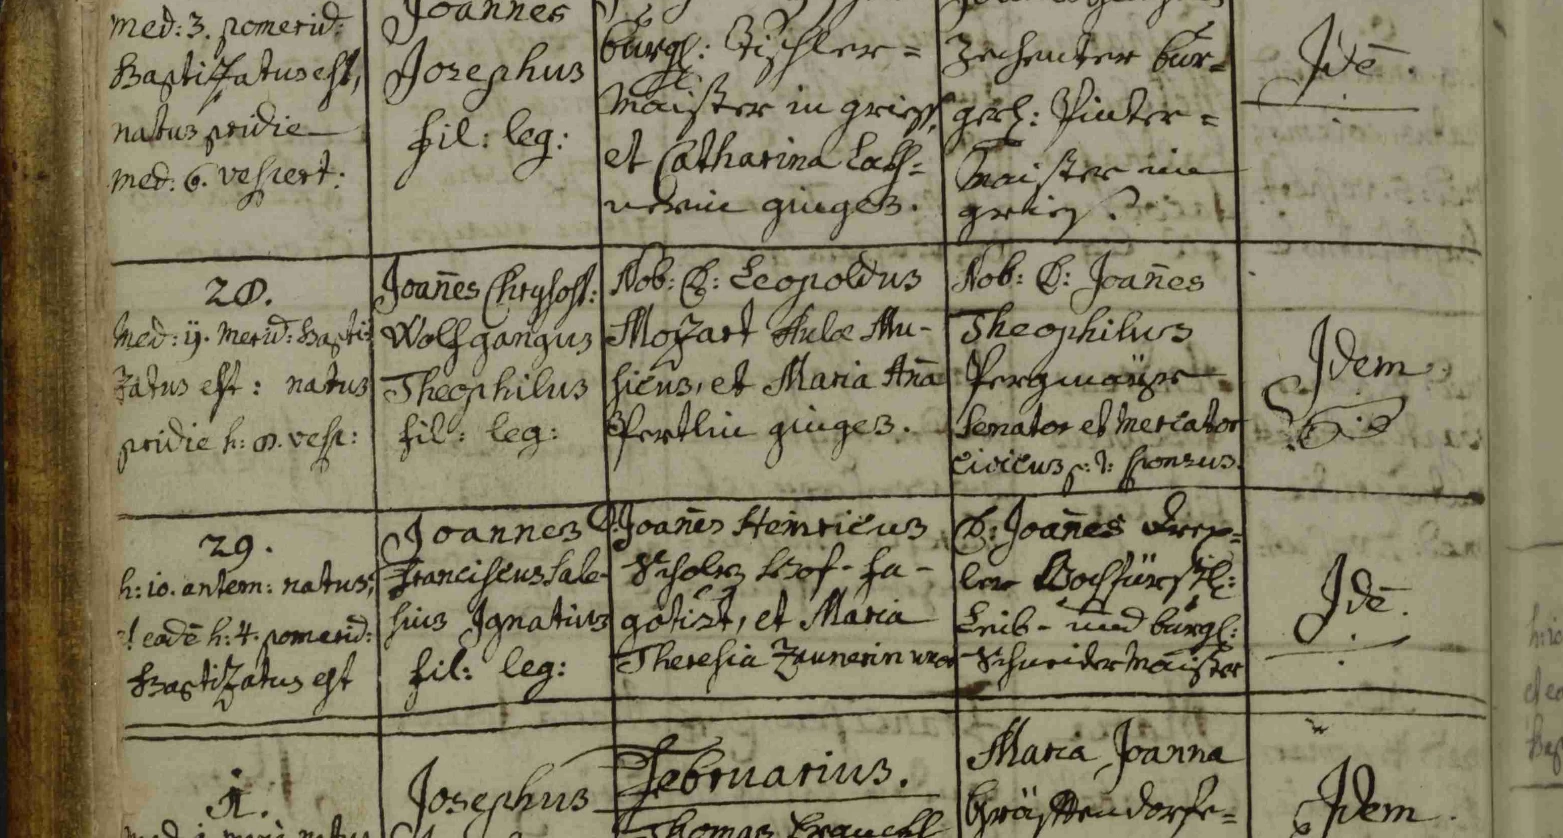 med: 3. pomerid:
Baptizatus est,
natus pridie
med: 6. vespert:
Joannes
Josephus
fil: leg:
burgl: Tischler=
Maister in grieß,
et Catharina
uxin giuges.
Zechenter bur=
gerl: Pinter=
Maister im
grieß.
Idē.
28.
med: 11. merid: Bapti
zatus est: natus
pridie h: 8. vesp:
Joañes Chrysost:
Wolfgangus
Theophilus
fil: leg:
Nob: D: Leopoldus
Mozart Aulæ Mu-
sicus, et Maria Aña
Pertlin giuges.
Nob: D: Joañes
Theophilus
Pergmäyr
Senator et Mercator
civicus p: t: sponsus.
Idem
29.
h: 10. antem: natus;
eadē h: 4. pomerid:
Baptizatus est
Joannes
Franciscus Sale-
sius Ignatius
fil: leg:
D: Joañes Henricus
Scholz Hof-fa-
gotist, et Maria
Theresia Zaunerin uxor
D: Joañes Drex=
ler Hochfürstl:
Leib- und burgl:
Schneider Maister
Idē.
Februarius.
1.
Josephus
Thomas
Maria Joanna
Idem.